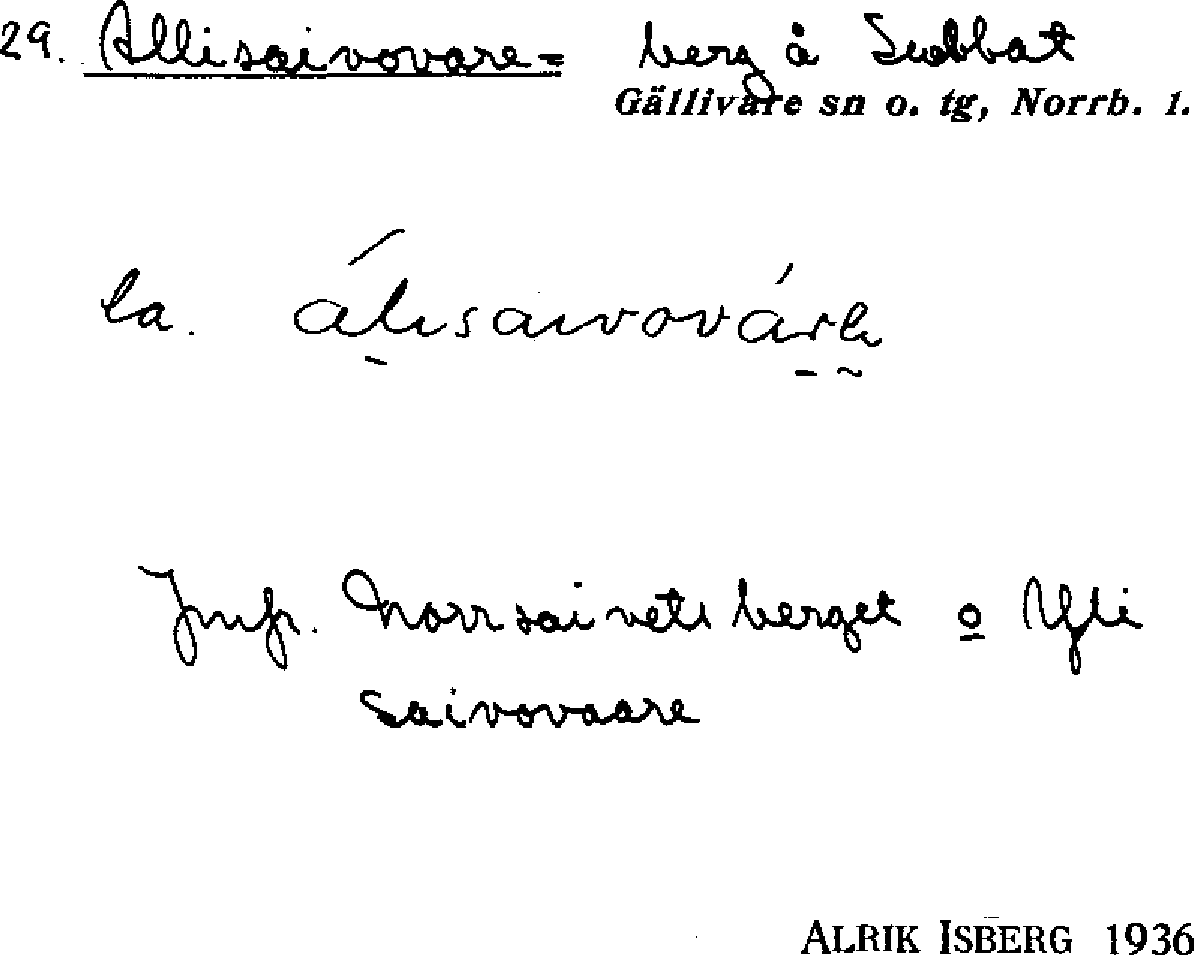 29. Allisaivovare= berg å Subbat
Gällivare sn o. tg, Norrb. l.
la. álisaivovárε
Jmfr. Norrsaivets berget o Yli
saivovaare
ALRIK ISBERG 1936